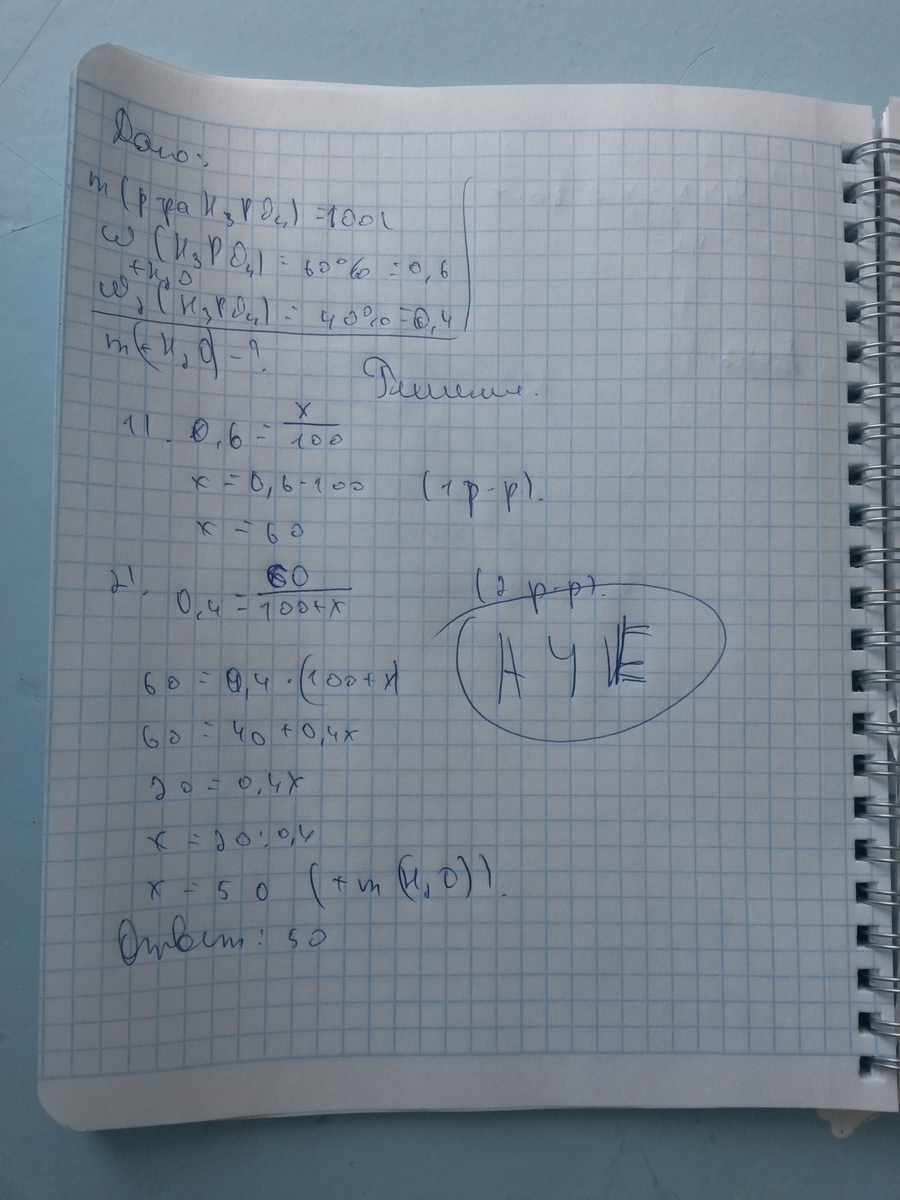 Дано:
m(р-ра H₃PO₄) = 100г
ω(H₃PO₄) = 60% = 0,6
+H₂O
ω₂(H₃PO₄) = 40% = 0,4
m(+H₂O) - ?
Решение.
1). 0,6 = x/100
x = 0,6·100 (1 р-р).
x = 60
2). 0,4 = 60/100+x (2 р-р).
60 = 0,4·(100+x)
60 = 40+0,4x
20 = 0,4x
x = 20:0,4
x = 50 (+m(H₂O)).
Ответ: 50